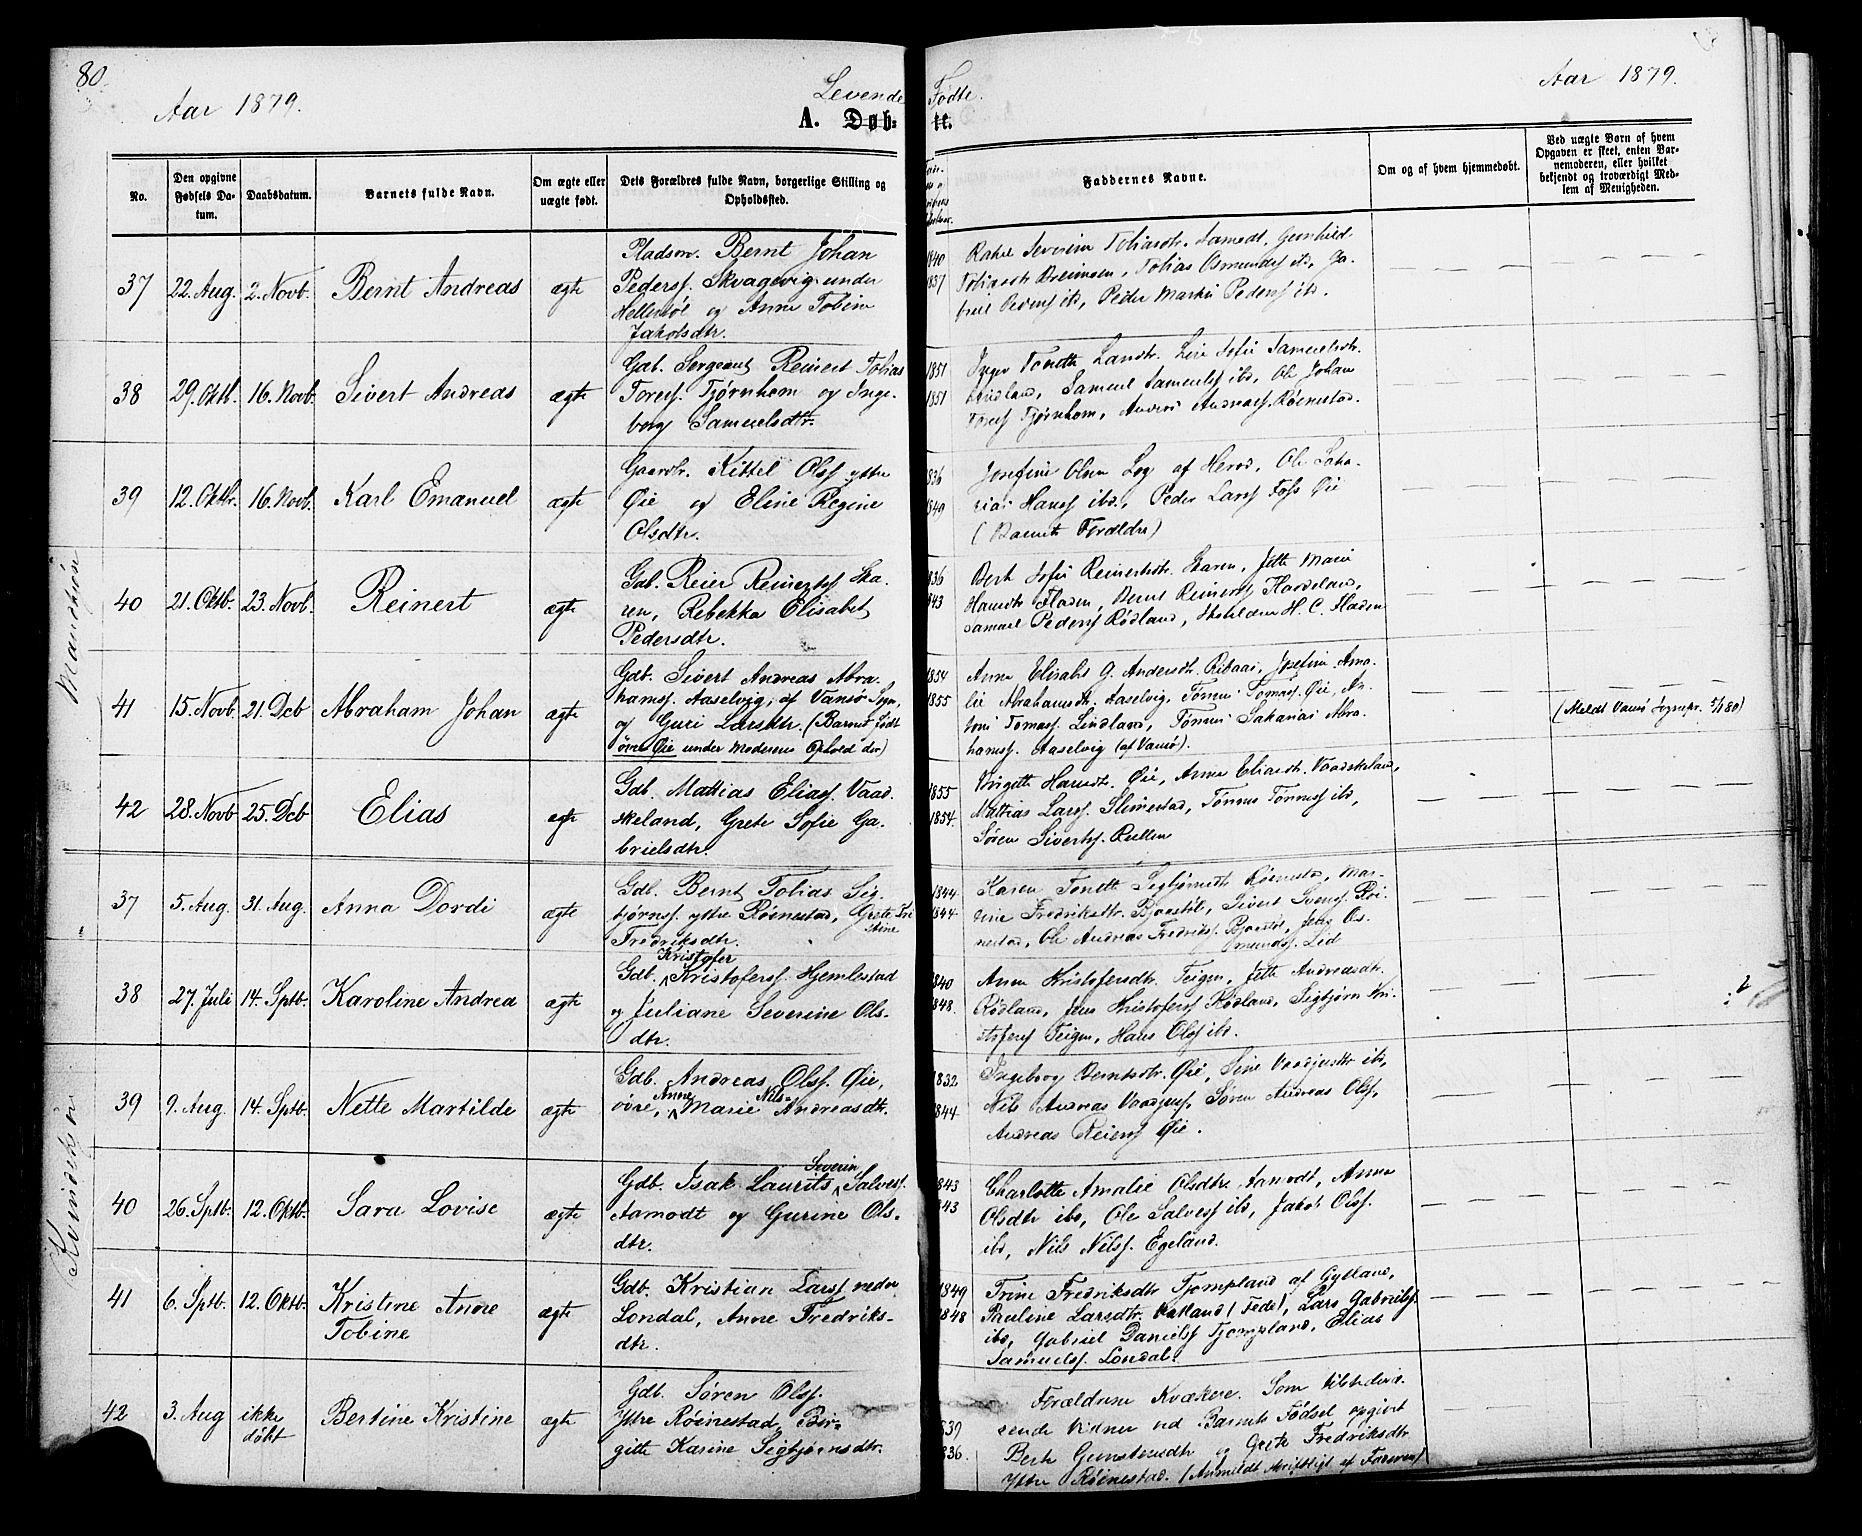 80.
Aar 1879.
Levende Fødte.
A. Døbte.
Aar 1879.
No.
Den opgivne Fødsels Datum.
Daabsdatum.
Barnets fulde Navn.
Om ægte eller uægte født.
Dets Forældres fulde Navn, borgerlige Stilling og Opholdssted.
Faddernes Navne.
Om og af hvem hjemmedøbt.
Ved uægte Børn af hvem Opgaven er skeet, enten Barnemoderen, eller hvilket bekjendt og troværdigt Medlem af Menigheden.
Mandkjøn
37 22. Aug. 2. Novb. Bernt Andreas ægte
Pladsm. Bernt Johan
Peders. Skvagevig under
Hellestøl og Anne Tobine
Jakobsdtr.
1840
1837
Rakel Severine Tobiasdtr. Aamodt, Gunhild
Tobiasdtr Breimoen, Tobias Osmunds ibd, Ga-
briel Peders ibd, Peder Martin Peders ibd.
38 29. Oktb. 16. Novb. Sivert Andreas ægte
Gdb. Sergeant Reinert Tobias
Tores. Tjørnhom og Inge-
borg Samuelsdtr.
1851
1851
Inger Tonette Larsdtr. Line Sofie Samuelsdtr.
Lindland, Samuel Samuels ibd, Ole Johan
Tores Tjørnhom, Anders Andreas. Røinestad.
39 12. Oktb. 16. Novb. Karl Emanuel ægte
Gaardbr. Kittel Ols. ytre
Øie og Eline Regine
Olsdtr.
1836
1849
Josefine Olsen Log af Herad, Ole Saka-
rias Hans ibd., Peder Lars Foss Øie
(Barnets Forældre)
40 21. Oktb. 23. Novb. Reinert ægte
Gdb. Reier Reinerts Ska-
ren, Rebekka Elisabet
Pedersdtr.
1836
1843
Bert Sofie Reinertsdtr. Skaren, Jette Marie
Hansdtr Fladen, Bernt Reinerts Haadeland,
Samuel Peders Rødland, Skoleldrer H. C. Fladen
41 15. Novb 21. Dcb Abraham Johan ægte
Gdb. Sivert Andreas Abra-
hams. Aaselvig, af Vansø Sogn,
og Guri Larsdtr. (Barnet født
øvre Øie under Moderens Ophold der)
1854
1855
Anne Elisabt G. Andersdtr. Ribaai, Josefine Ama-
lie Abrahamsdtr. Aaselvig, Tønnes Tomas. Øie, An-
toni Tomas. Lindland, Tønnes Sakarias Abra-
hams. Aaselvig (af Vansø).
(Meldt Vansø Sognepr. 2/1 80)
42 28. Novb 25. Dcb Elias ægte
Gdb. Mattias Elias. Vaad-
skeland, Grete Sofie Ga-
brielsdtr.
1855
1854.
Birgitte Hansdtr. Øie, Anne Eliasdtr. Vaadskeland,
Mattias Lars. Slimestad, Tønnes Tønnes ibd,
Søren Siverts. Rullen
Kvindekjøn
37 5. Aug. 31. Aug. Anna Dordi ægte
Gdb. Bernt Tobias Sig-
bjørns. ytre Røinestad, Grete Tri-
stine
Fredriksdtr.
1844
1844
Karen Tonette Sigbjørnsdtr Røinestad, Mar-
tine Fredriksdtr. Bjaastøl, Sivert Svens. Røi-
nestad, Ole Andreas Fredriks. Bjaastøl, Jens Os-
munds. Lid
38 27. Juli 14. Sptb. Karoline Andrea ægte
Kristofer
Gdb. Kristofers. Hjemlestad
og Juliane Severine Ols-
dtr.
1840
1848.
Anne Kristofersdtr. Teigen, Jette Andreasdtr.
Rødland, Jens Kristofers Rødland, Sigbjørn Kri-
stofers Teigen, Hans Ols ibd.
39 9. Aug. 14. Sptb. Nette Martilde ægte
Gdb. Andreas Ols. Øie,
Anne Nils-
øvre, Marie Andreasdtr.
1832
1844
Ingeborg Berntsdtr. Øie, Sine Vaadjersdtr ibd,
Nils Andreas Vaadjers, Søren Andreas Ols,
Andreas Reiers Øie.
40 26. Sptb. 12. Oktb. Sara Lovise ægte
Severin
Gdb. Isak Laurits Salves.
Aamodt og Gurine Ols-
dtr.
1843
1843
Charlotte Amalie Olsdtr. Aamodt, Anne
Olsdtr ibd, Ole Salves ibd, Jakob Ols.
ibd, Nils Nils. Egeland.
41 6. Sptb. 12. Oktb. Kristine Anne Tobine ægte
Gdb. Kristian Lars nedre
Londal, Anne Fredriks-
dtr.
1849
1848
Trine Fredriksdtr Tjompland af Gylland,
Pauline Larsdtr. Øksland (Fede), Lars Gabriels.
ibd, Gabriel Daniels Tjompland, Elias
Samuels. Londal.
42 3. Aug ikke døbt Bertine Kristine ægte
Gdb. Søren Ols.
Ytre Røinestad, Bir-
gitte Karine Sigbjørnsdtr.
1839
1836.
Forældrene Kvækere. Som tilstedevæ-
rende Vidner ved Barnets Fødsel opgivet
Bert Gunstensdtr og Grete Fredriksdtr
Ytre Røinestad. (Anmeldt skriftligt af Faderen)